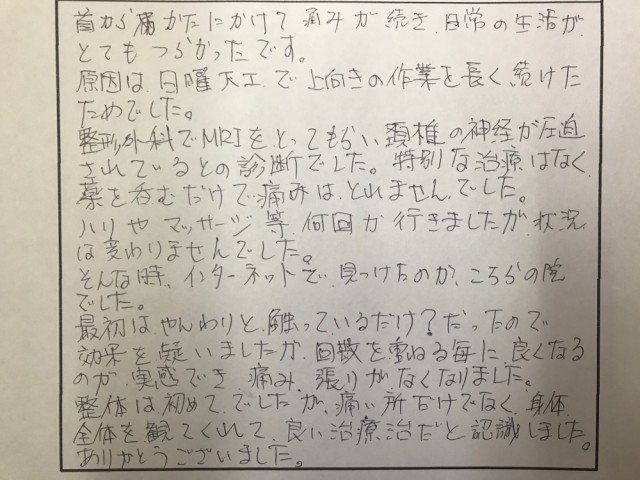 首から肩かたにかけて痛みが続き、日常の生活が、
とてもつらかったです。
原因は、日曜大工で上向きの作業を長く続けた
ためでした。
整形外科でMRIをとってもらい、頚椎の神経が圧迫
されているとの診断でした。特別な治療はなく、
薬を呑むだけで痛みは、とれませんでした。
ハリやマッサージ等、何回か行きましたが、状況
は変わりませんでした。
そんな時、インターネットで、見つけたのが、こちらの院
でした。
最初は、やんわりと、触っているだけ?だったので
効果を疑いましたが、回数を重ねる毎に、良くなる
のが、実感でき、痛み、張りが、なくなりました。
整体は初めて、でしたが、痛い所だけでなく、身体
全体を観てくれて、良い治療治だと認識しました。
ありがとうございました。